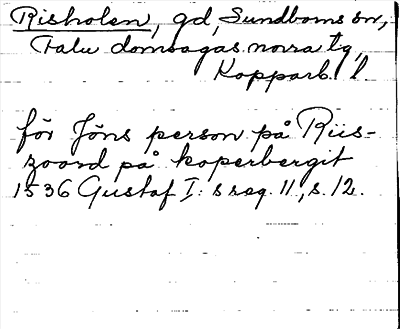 Risholen, gd, Sundborns sn,
Falu domsagas norra tg,
Kopparb. l.
för Jöns person på Riis-
zoord på koperbergit
1536 Gustaf I: s reg. 11, s. 12.